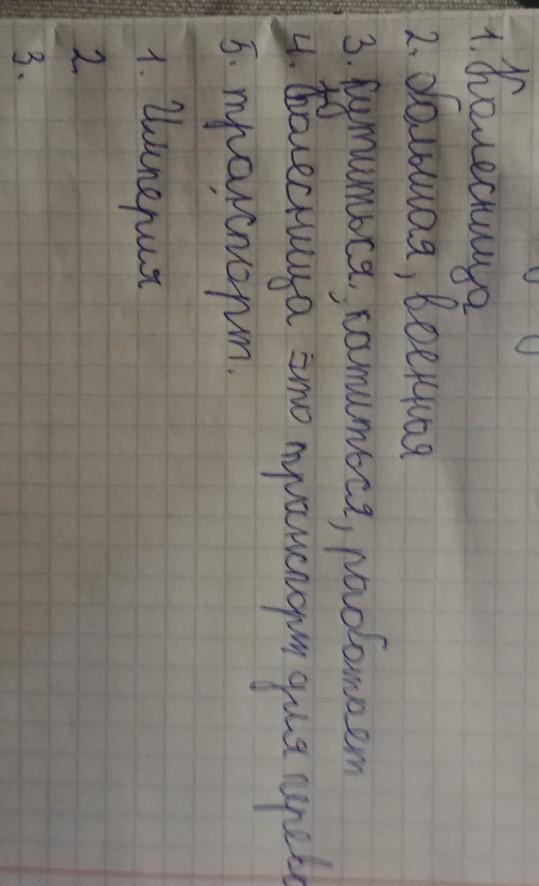 1. Колесница
2. большая, военная
3. катиться, работает
4. Колесница это транспорт для
5. транспорт.
1. Империя
2.
3.